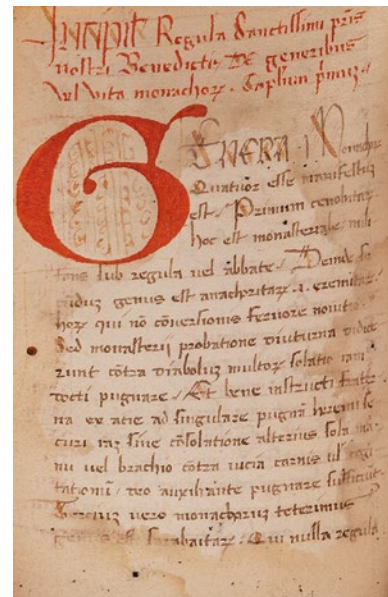 Incipit Regula Sanctissimi pris
nostri Benedicti. De generibus
vel vita monachorꝝ. Caplum primuz.
GENERA Monachorꝝ
Quatuor esse manifestuz
est. Primum cenobitarꝝ
hoc est monasteriale mili
tans sub regula vel abbate. Deinde se
cunduz genus est anachoritarꝝ .i. eremitar
horꝝ qui nō cōversionis fervore novitio
sed monasterij probatione diuturna didice
runt cōtra diaboluz multorꝝ solatio iam
docti pugnare. Et bene instructi frater
na ex acie ad singulare pugnā heremi se
curi iaz sine cōsolatione alterius sola ma
nu vel brachio cōtra vicia carnis vel cogi
tationū, deo auxiliante pugnare sufficiūt
Terciuz vero monachoruz teterimuz
genus est sarabaitarꝝ. Qui nulla regula